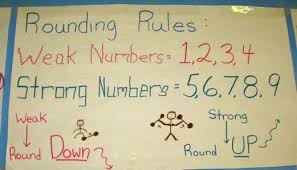 Rounding Rules:
Weak Numbers = 1,2,3,4
Strong Numbers = 5,6,7,8,9
Weak
Round Down
Strong
Round UP